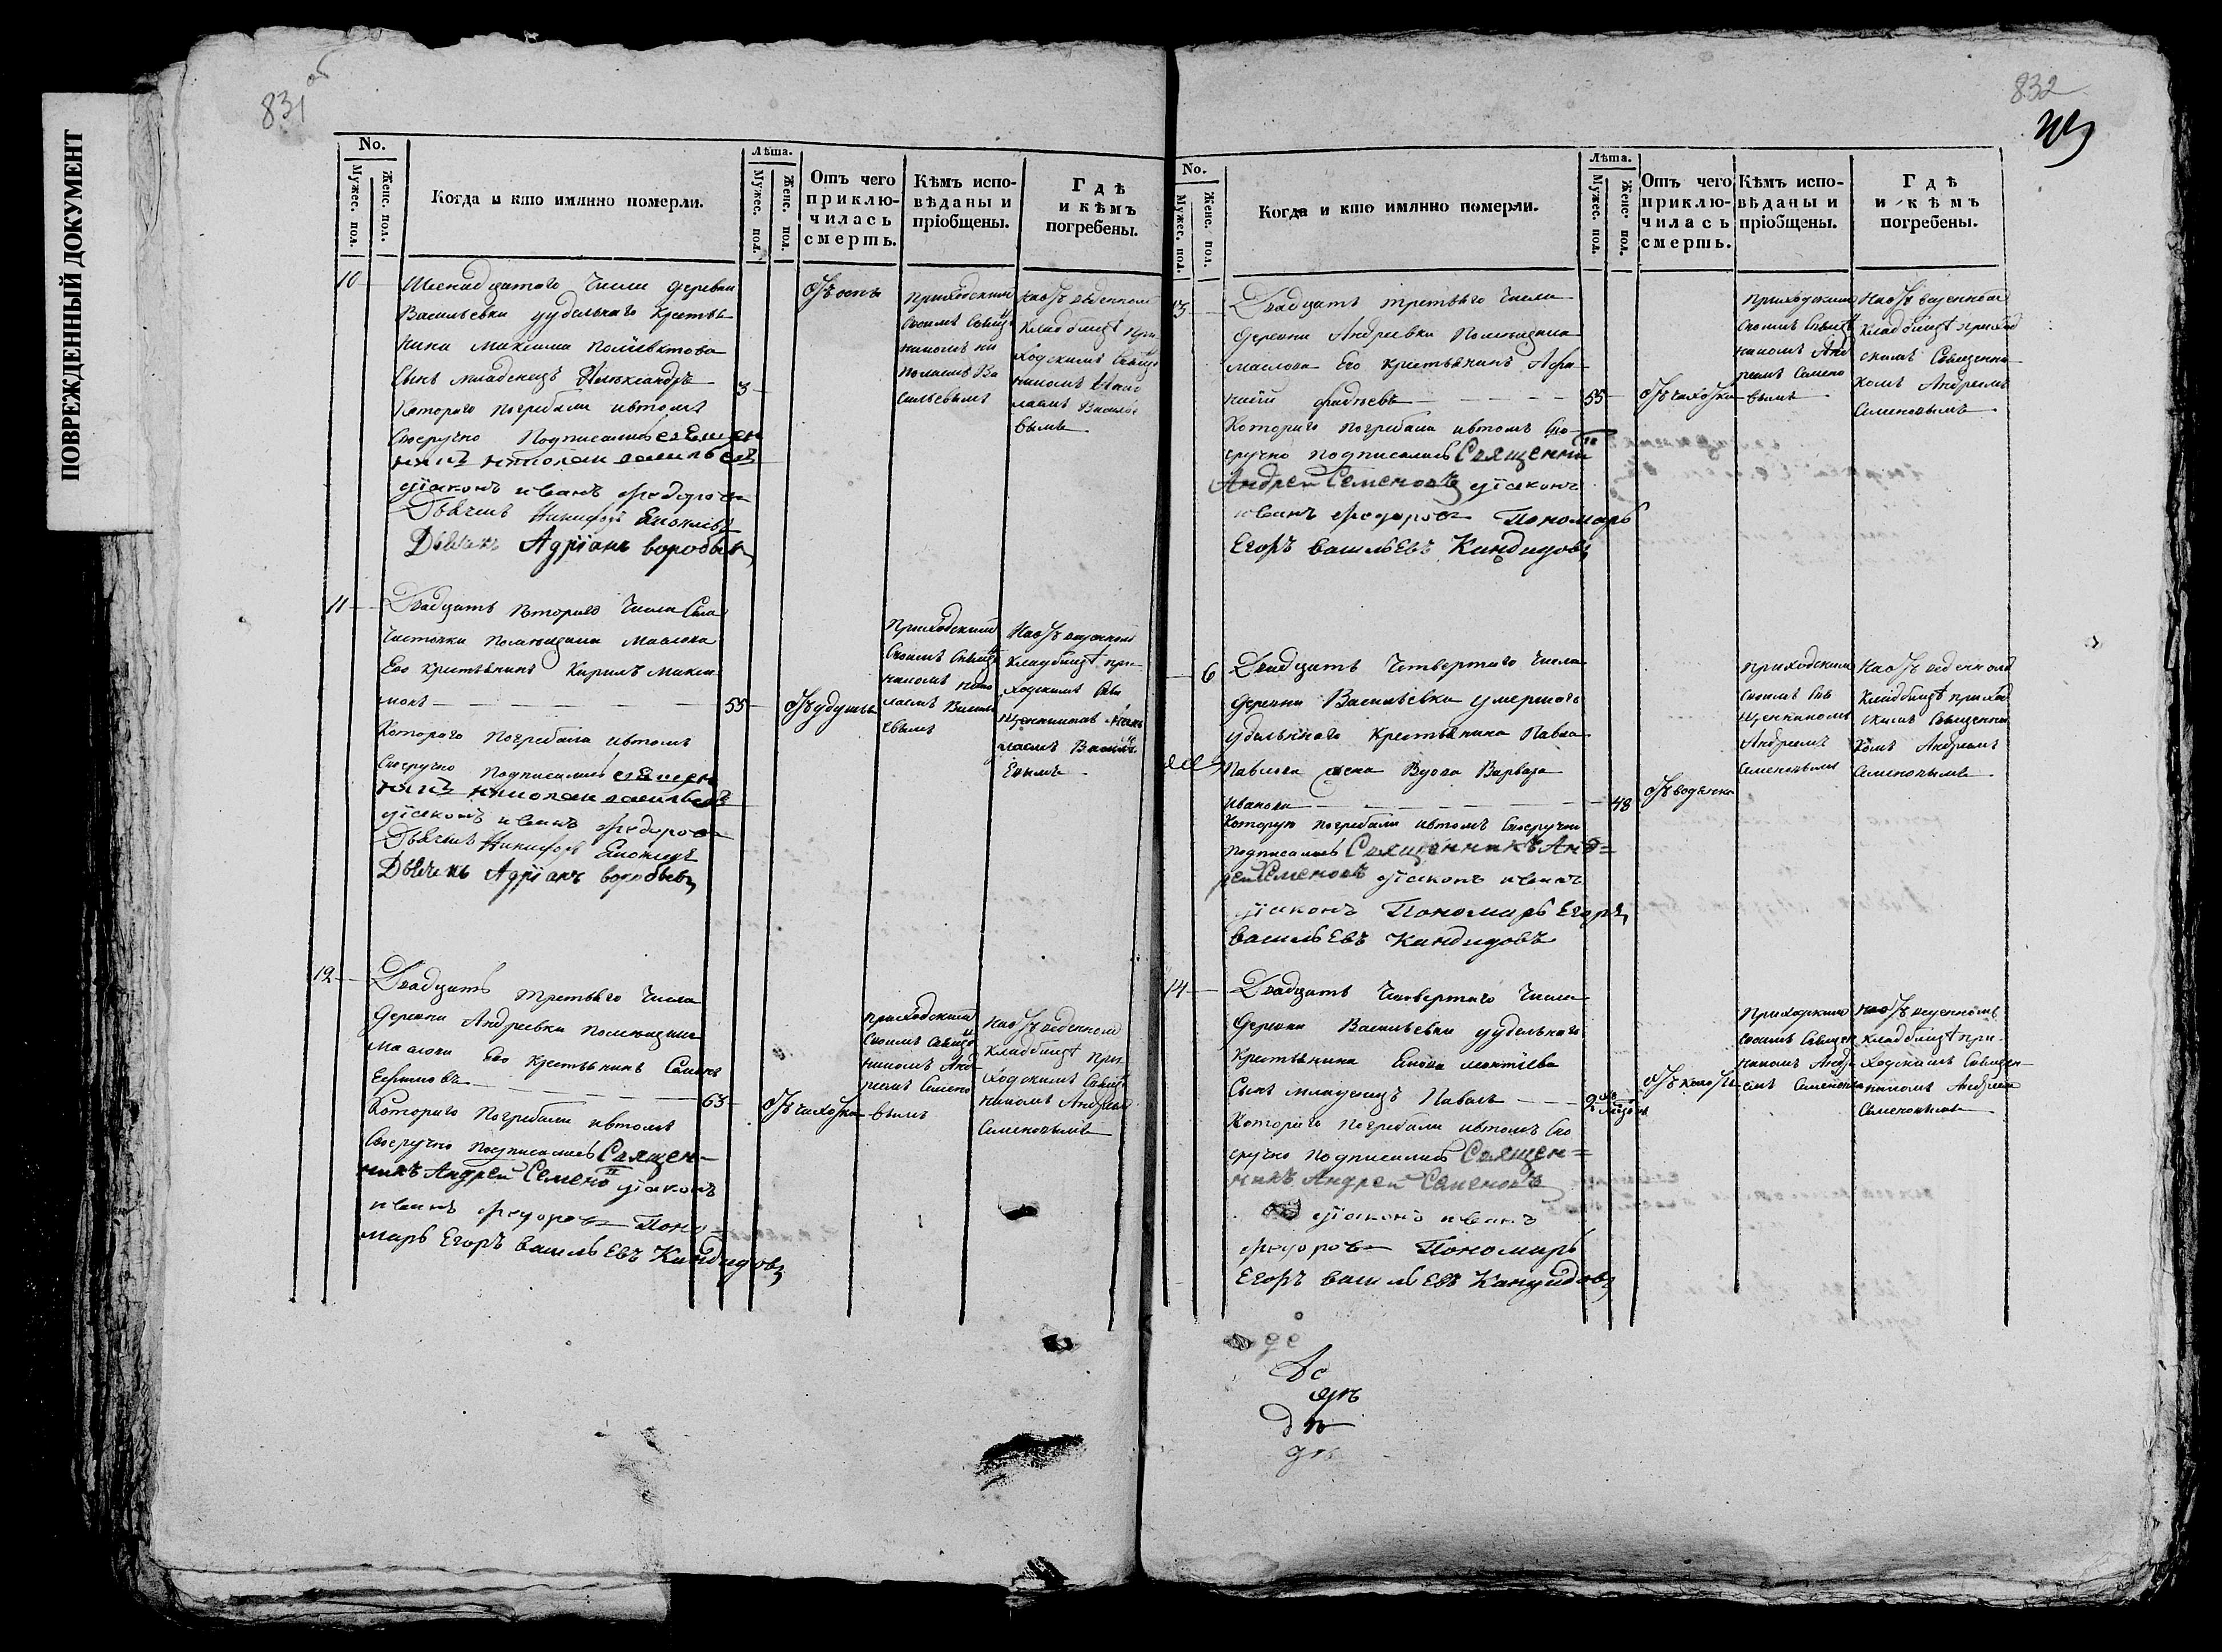 ПОВРЕЖДЕННЫЙ ДОКУМЕНТ
831 об
No.
Мужес. пол.
Женс. пол.
Когда и кто имянно померли.
Лѣта.
Мужес. пол.
Женс. пол.
Отъ чего
приклю-
чилась
смерть.
Кѣмъ испо-
вѣданы и
пріобщены.
Гдѣ
и кѣмъ
погребены.
10
числа деревни
Васильевки удельнаго крестья
нина Максима
Сынъ младенецъ Александръ
3
Котораго погребали ивтомъ
Своеручно Подписались Священ
никъ Николаи васильевъ
діаконъ иванъ федоровъ
Дьячекъ Никифоръ
Дьячекъ Адріанъ воробьевъ
Отъ оспы
Приходскимъ
Своимъ Свящ
никомъ Ни
колаемъ Ва
сильевымъ
На отъведенномъ
кладбищѣ при
ходскимъ Свяще
никомъ Нико
лаемъ Василье
вымъ
11
Двадцать втораго числа Села
помещика Маслова
Его крестьянинъ Кирилъ Макси
мовъ
55
Котораго Погребали ивтомъ
Своеручно подписались Священ
никъ Николаи васильевъ
діаконъ иванъ федоровъ
Дьячекъ Никифоръ
Дьячекъ Адріанъ воробьевъ
Отъ удушья
Приходскимъ
Своимъ Свящ
никомъ Нико
лаемъ Василь
евымъ
На отъведенномъ
кладбищѣ при
ходскимъ Свя
щенникомъ Нико
лаемъ Василь
евымъ
12
Двадцать третьяго числа
деревни Андреевки помещика
Маслова Его крестьянинъ Семенъ
Ефимовъ
63
Котораго Погребали ивтомъ
Своеручно подписались Священ-
никъ Андреи Семеновъ діаконъ
иванъ федоровъ Поно-
марь Егоръ васильевъ Кандидовъ
Отъ чахотки
приходскимъ
Своимъ Свяще
никомъ Анд
реемъ Семено
вымъ
На отъведенномъ
кладбищѣ при
ходскимъ Свяще
никомъ Андреемъ
Семеновымъ
832
No.
Мужес. пол.
Женс. пол.
Когда и кто имянно померли.
Лѣта.
Мужес. пол.
Женс. пол.
Отъ чего
приклю-
чилась
смерть.
Кѣмъ испо-
вѣданы и
пріобщены.
Гдѣ
и кѣмъ
погребены.
13
Двадцать третьяго числа
деревни Андреевки Помещика
Маслова Его крестьянинъ
Фадѣевъ
55
Котораго погребали ивтомъ Сво
еручно подписались Священникъ
Андреи Семеновъ діаконъ
иванъ федоровъ Пономарь
Егоръ васильевъ Кандидовъ
Отъ чахотки
приходскимъ
Своимъ Свящ
никомъ Анд
реемъ Семено
вымъ
На отъведенномъ
кладбищѣ приход
скимъ Священни
комъ Андреемъ
Семеновымъ
6
Двадцать четвертаго числа
деревни Васильевки умершаго
удельнаго крестьянина Павла
Павлова жена Вдова Варвара
Иванова
48
Которую погребали ивтомъ Своеручно
подписались Священникъ Анд=
реи Семеновъ діаконъ иванъ
діаконъ Пономарь Егоръ
васильевъ Кандидовъ
Отъ водянки
приходскимъ
Своимъ Свя
щенникомъ
Андреемъ
Семеновымъ
На отъведенномъ
кладбищѣ приход
скимъ Священни
комъ Андреемъ
Семеновымъ
14
Двадцать четвертаго числа
деревни Васильевки удельнаго
крестьянина
Сынъ младенецъ Павелъ
2
Котораго погребали ивтомъ Сво
еручно подписались Священ=
никъ Андреи Семеновъ
діаконъ иванъ
федоровъ Пономарь
Егоръ васильевъ Кандидовъ
Приходскимъ
Своимъ Священ
никомъ Андре
емъ Семеновымъ
На отъведенномъ
кладбищѣ при-
ходскимъ Священ-
никомъ Андреемъ
Семеновымъ